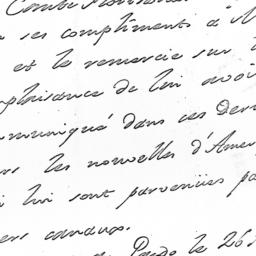 Comte
ses compliments à
et le remercie sur
plaisance de lui avoir
muniqué dans ces Der
rs les nouvelles d'Amer
i lui sont parvenües pa
ers canaux.
Pardo le 26